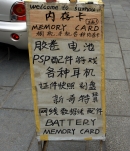 welcome to suzhou
内存卡
MEMORY CARD
胶卷 电池
PSP配件 游戏
各种耳机
证件快照 刻盘
BATTERY
MEMORY CARD